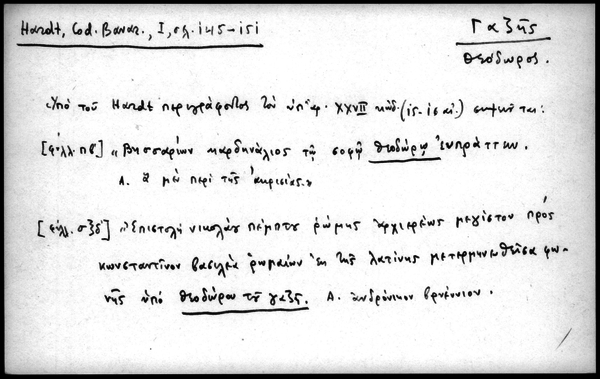 Hardt, Cod. Bavar., I, σελ. 145-151
Γαζῆς
Θεόδωρος.
Ὑπὸ τοῦ Hardt περιγράφοντος τὸν ὑπ' ἀρ. XXVII κώδ. (15-16 αἰ.) σημειοῦται:
[φύλλ. πβ'] «Βησσαρίων καρδηνάλιος τῷ σοφῷ Θεοδώρῳ εὖ πράττειν.
Α. ἃ μὲν περὶ τῆς
[φύλλ. σξδ'] «Ἐπιστολὴ νικολάου πέμπτου ῥώμης ἀρχιερέως μεγίστου πρὸς
κωνσταντῖνον βασιλέα ῥωμαίων ἐκ τῆς λατίνης μετερμηνευθεῖσα φω-
νῆς ὑπὸ θεοδώρου τοῦ γαζῆ. Α. ἀνδρόνικον βρυέννιον.